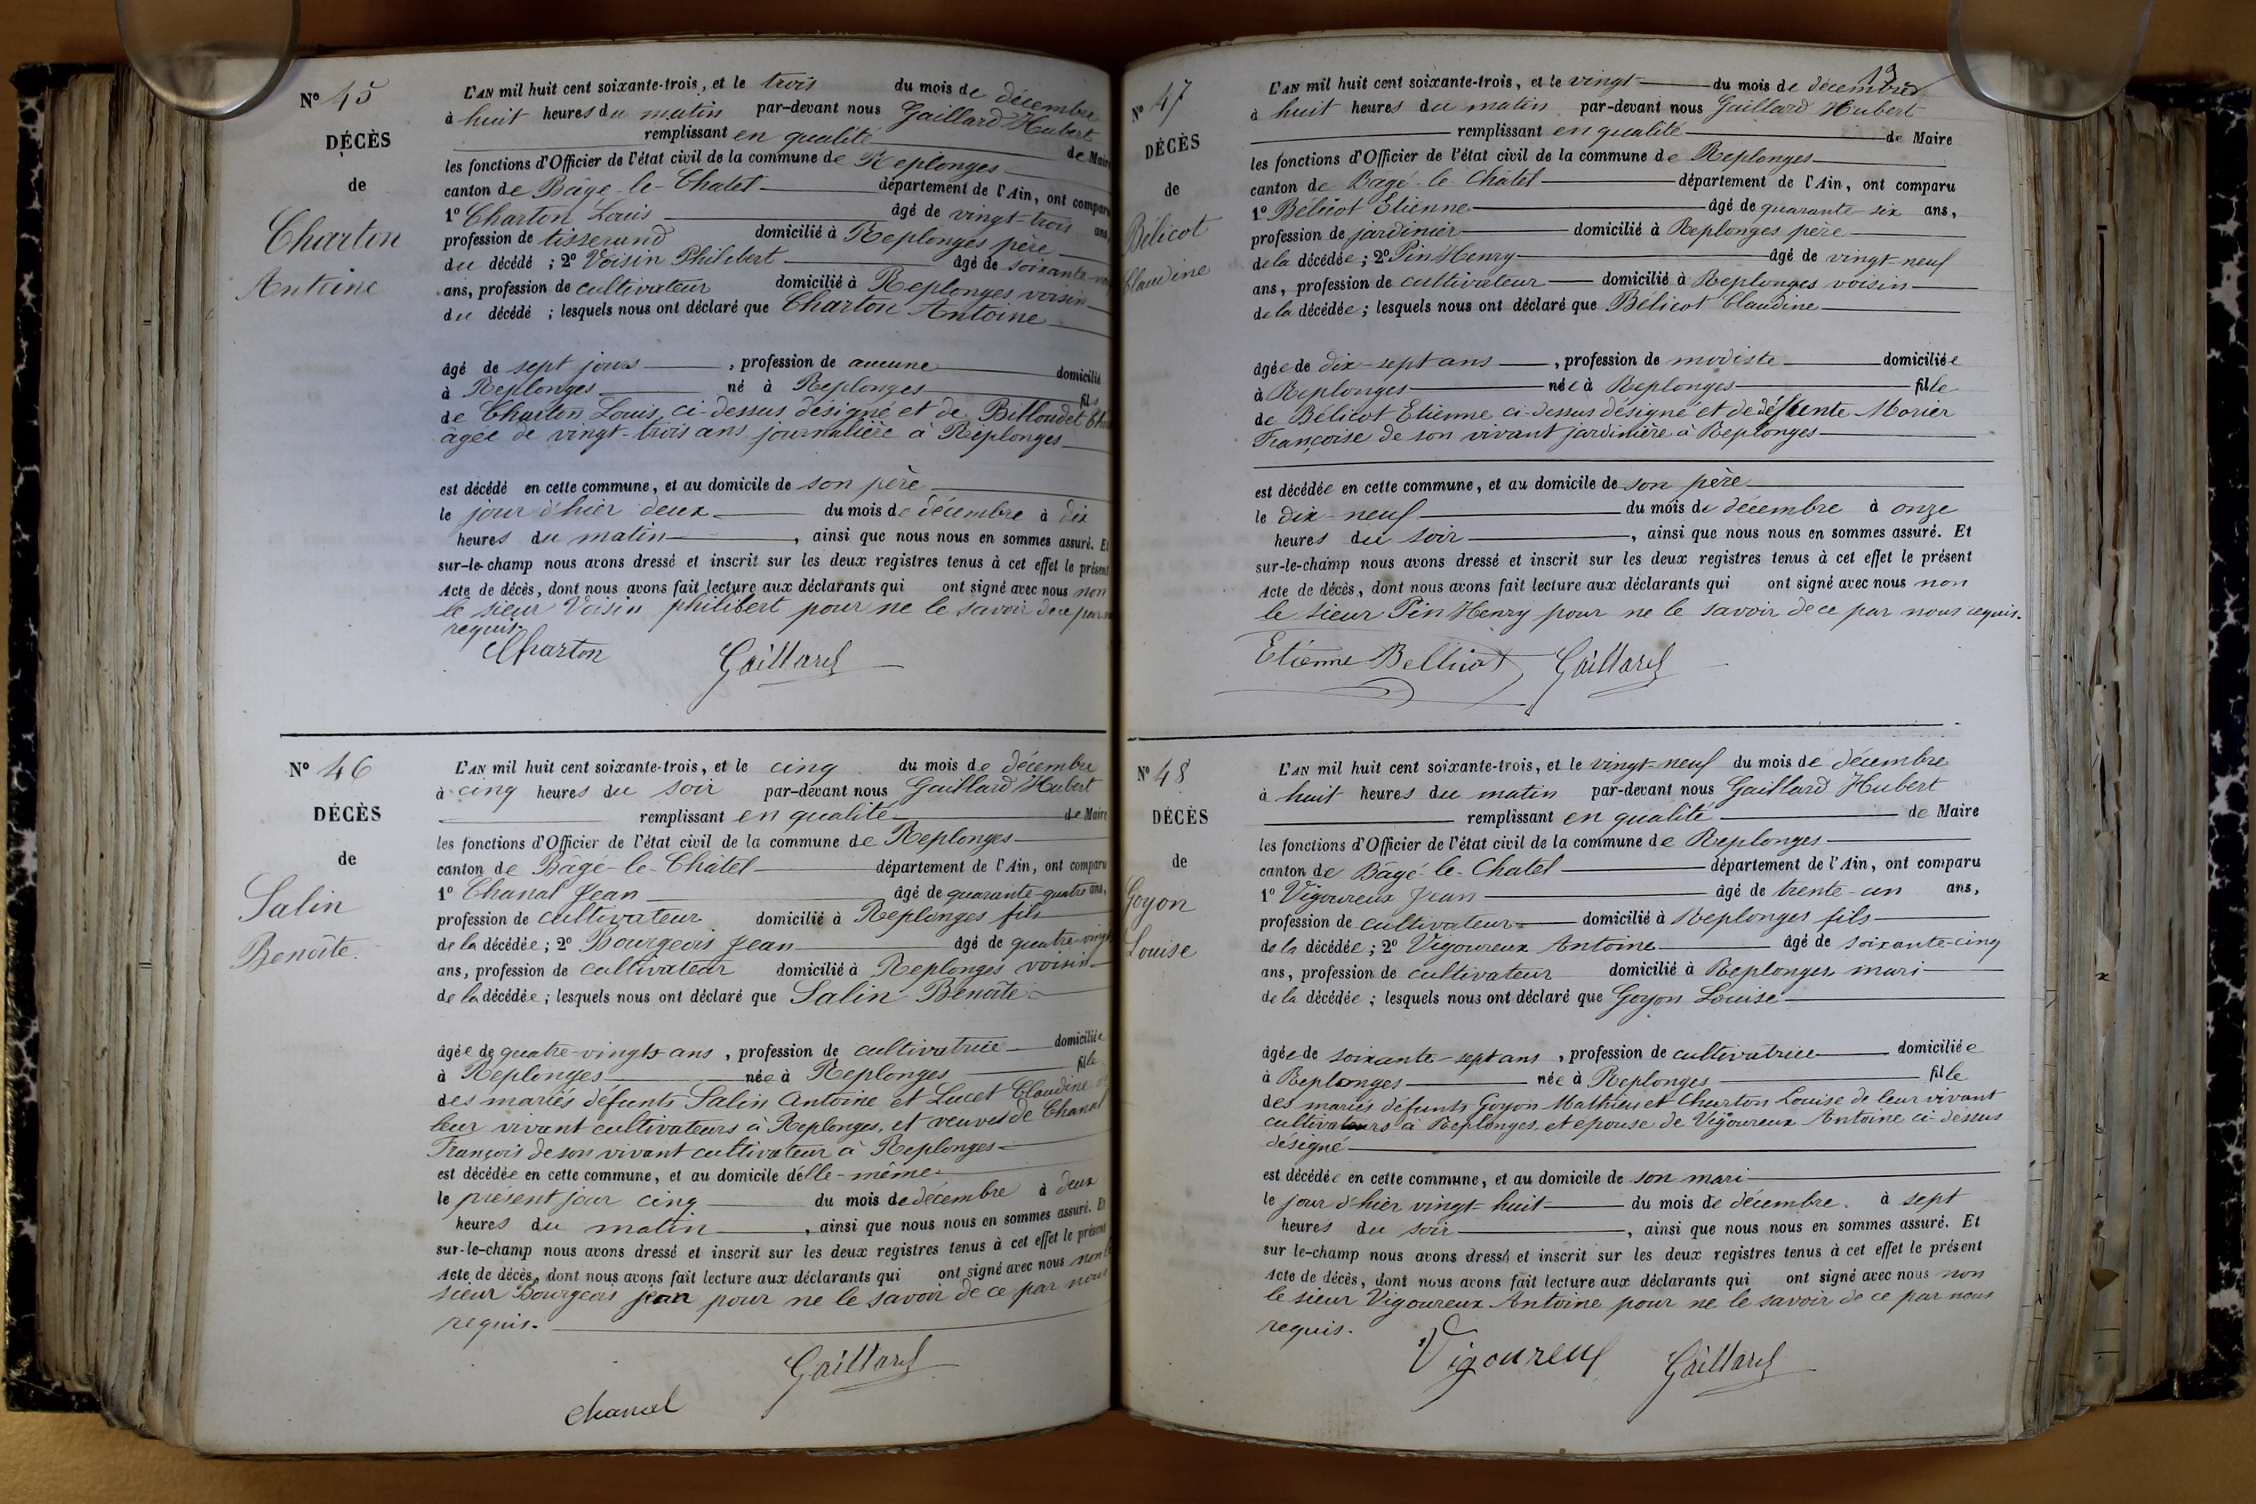 N° 45
DÉCÈS
de
Charton
Antoine
L'AN mil huit cent soixante-trois, et le trois du mois de décembre
à huit heures du matin par-devant nous Gaillard Hubert
remplissant en qualité de Maire
les fonctions d'Officier de l'état civil de la commune de Replonges
canton de Bâgé-le-Chatel département de l'Ain, ont comparu
1° Charton Louis âgé de vingt-trois ans,
profession de tisserand domicilié à Replonges père
du décédé ; 2° Voisin Philibert âgé de soixante
ans, profession de cultivateur domicilié à Replonges voisin
du décédé ; lesquels nous ont déclaré que Charton Antoine
âgé de sept jours, profession de aucune domicilié
à Replonges né à Replonges fils
de Charton Louis, ci-dessus désigné et de Billoudet
âgée de vingt-trois ans journalière à Replonges
est décédé en cette commune, et au domicile de son père
le jour d'hier deux du mois de décembre à dix
heures du matin, ainsi que nous nous en sommes assuré. Et
sur-le-champ nous avons dressé et inscrit sur les deux registres tenus à cet effet le présent
Acte de décès, dont nous avons fait lecture aux déclarants qui ont signé avec nous non
le sieur Voisin philibert pour ne le savoir de ce par
requis.
Charton Gaillard
N° 46
DÉCÈS
de
Salin
Benoîte.
L'AN mil huit cent soixante-trois, et le cinq du mois de décembre
à cinq heures du soir par-devant nous Gaillard Hubert
remplissant en qualité de Maire
les fonctions d'Officier de l'état civil de la commune de Replonges
canton de Bâgé-le-Châtel département de l'Ain, ont comparu
1° Chanal Jean âgé de quarante-quatre ans,
profession de cultivateur domicilié à Replonges fils
de la décédée ; 2° Bourgeois Jean âgé de quatre-vingt
ans, profession de cultivateur domicilié à Replonges voisin
de la décédée ; lesquels nous ont déclaré que Salin Benoîte
âgée de quatre-vingts ans, profession de cultivatrice domiciliée
à Replonges née à Replonges fille
des mariés défunts Salin Antoine et Lucet Claudine
leur vivant cultivateurs à Replonges, et veuve de Chanal
François de son vivant cultivateur à Replonges
est décédée en cette commune, et au domicile d'elle-même
le présent jour cinq du mois de décembre à deux
heures du matin, ainsi que nous nous en sommes assuré. Et
sur-le-champ nous avons dressé et inscrit sur les deux registres tenus à cet effet le présent
Acte de décès, dont nous avons fait lecture aux déclarants qui ont signé avec nous non le
sieur Bourgeois jean pour ne le savoir de ce par nous
requis.
Gaillard
Chanal
19
N° 47
DÉCÈS
de
Bélicot
Claudine
L'AN mil huit cent soixante-trois, et le vingt du mois de décembre
à huit heures du matin par-devant nous Gaillard Hubert
remplissant en qualité de Maire
les fonctions d'Officier de l'état civil de la commune de Replonges
canton de Bâgé-le-Châtel département de l'Ain, ont comparu
1° Bélicot Etienne âgé de quarante-six ans,
profession de jardinier domicilié à Replonges père
de la décédée ; 2° Pin Henry âgé de vingt-neuf
ans, profession de cultivateur domicilié à Replonges voisin
de la décédée ; lesquels nous ont déclaré que Bélicot Claudine
âgée de dix-sept ans, profession de modiste domiciliée
à Replonges née à Replonges fille
de Bélicot Etienne ci-dessus désigné et de défunte Morier
Françoise de son vivant jardinière à Replonges
est décédée en cette commune, et au domicile de son père
le dix-neuf du mois de décembre à onze
heures du soir, ainsi que nous nous en sommes assuré. Et
sur-le-champ nous avons dressé et inscrit sur les deux registres tenus à cet effet le présent
Acte de décès, dont nous avons fait lecture aux déclarants qui ont signé avec nous non
le sieur Pin Henry pour ne le savoir de ce par nous requis.
Etienne Bellicot Gaillard
N° 48
DÉCÈS
de
Goyon
Louise
L'AN mil huit cent soixante-trois, et le vingt-neuf du mois de décembre
à huit heures du matin par-devant nous Gaillard Hubert
remplissant en qualité de Maire
les fonctions d'Officier de l'état civil de la commune de Replonges
canton de Bâgé-le-Chatel département de l'Ain, ont comparu
1° Vigoureux Jean âgé de trente-un ans,
profession de cultivateur domicilié à Replonges fils
de la décédée ; 2° Vigoureux Antoine âgé de soixante-cinq
ans, profession de cultivateur domicilié à Replonges mari
de la décédée ; lesquels nous ont déclaré que Goyon Louise
âgée de soixante-sept ans, profession de cultivatrice domiciliée
à Replonges née à Replonges fille
des mariés défunts Goyon Mathieu et Charton Louise de leur vivant
cultivateurs à Replonges, et épouse de Vigoureux Antoine ci-dessus
désigné
est décédée en cette commune, et au domicile de son mari
le jour d'hier vingt-huit du mois de décembre. à sept
heures du soir, ainsi que nous nous en sommes assuré. Et
sur le-champ nous avons dressé et inscrit sur les deux registres tenus à cet effet le présent
Acte de décès, dont nous avons fait lecture aux déclarants qui ont signé avec nous non
le sieur Vigoureux Antoine pour ne le savoir de ce par nous
requis.
Vigoureux Gaillard